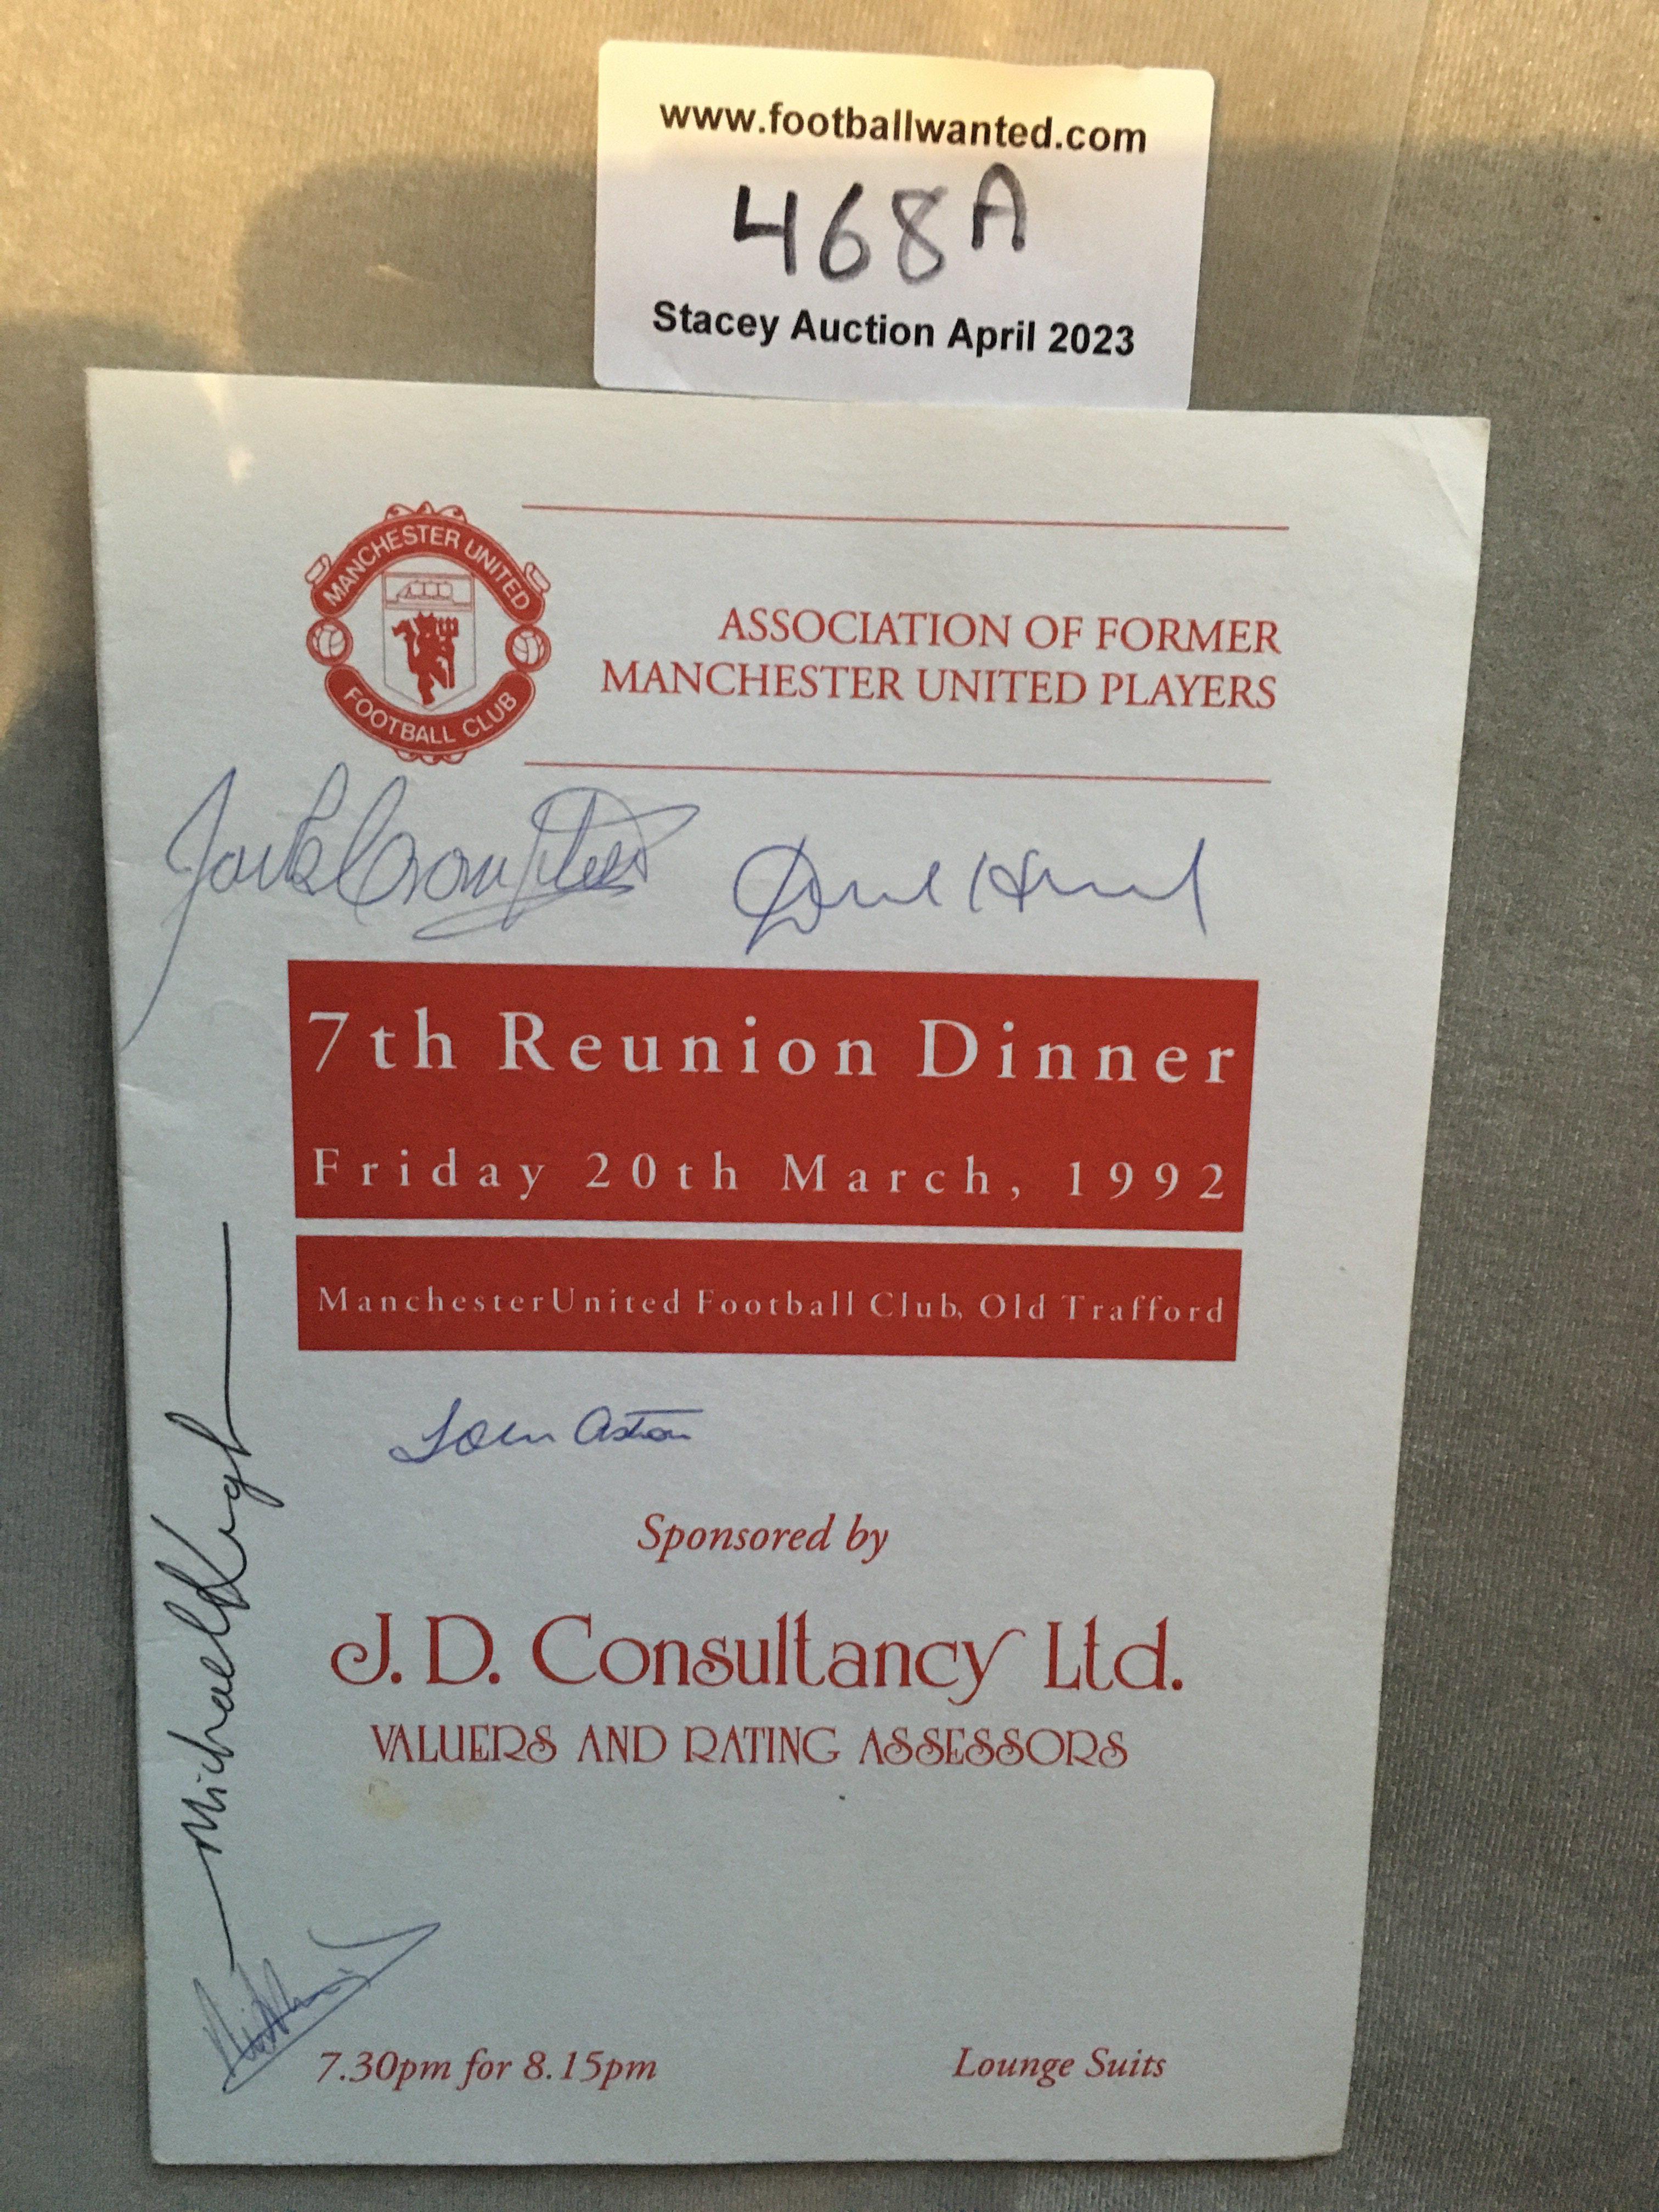 www.footballwanted.com
468A
Stacey Auction April 2023
MANCHESTER UNITED
FOOTBALL CLUB
ASSOCIATION OF FORMER
MANCHESTER UNITED PLAYERS
Jack Crompton
7th Reunion Dinner
Friday 20th March, 1992
Manchester United Football Club, Old Trafford
John Aston
Sponsored by
J. D. Consultancy Ltd.
VALUERS AND RATING ASSESSORS
Michael Keogh
7.30pm for 8.15pm
Lounge Suits